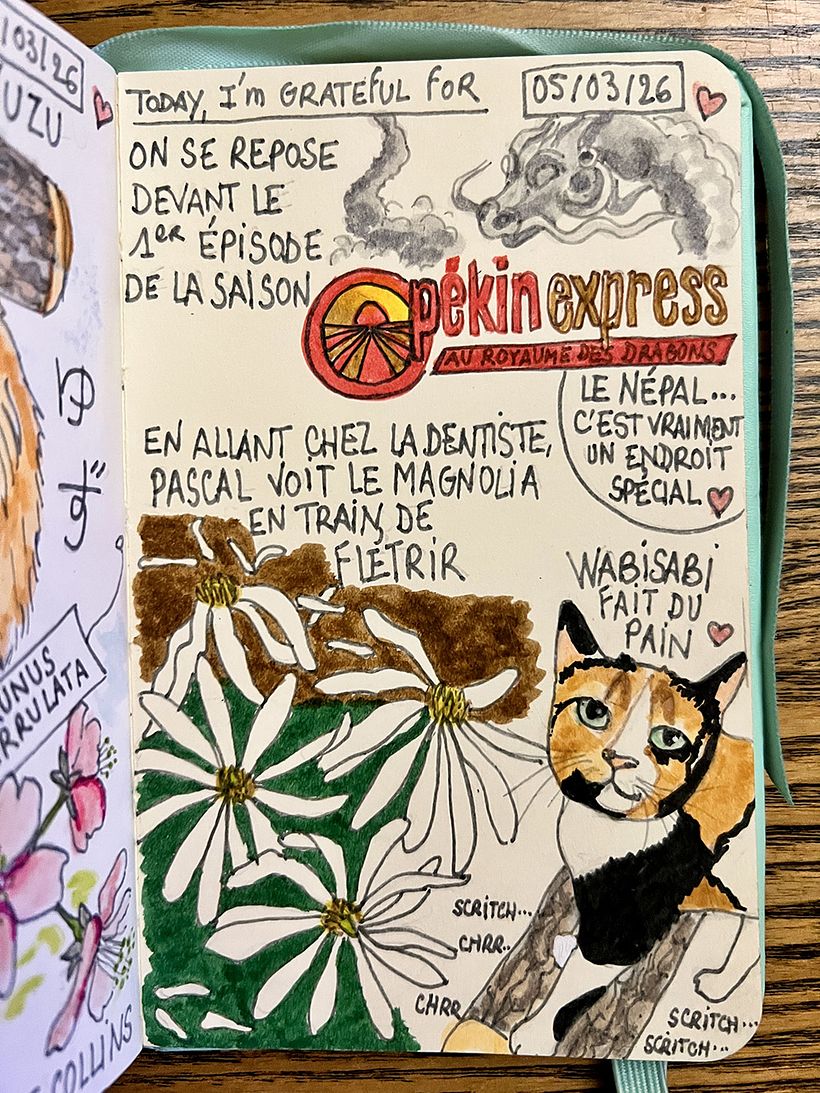 TODAY, I'm GRATEFUL FOR
05/03/26
ON SE REPOSE
DEVANT LE
1ER ÉPISODE
DE LA SAISON
pékin express
AU ROYAUME DES DRAGONS
LE NÉPAL...
C'EST VRAIMENT
UN ENDROIT
SPÉCIAL
EN ALLANT CHEZ LA DENTISTE,
PASCAL VOIT LE MAGNOLIA
EN TRAIN DE
FLÉTRIR
WABISABI
FAIT DU
PAIN
SCRITCH...
CHRR..
CHRR
SCRITCH...
SCRITCH...
/03/26
UZU
ゆず
UNUS
RRULATA
COLLINS